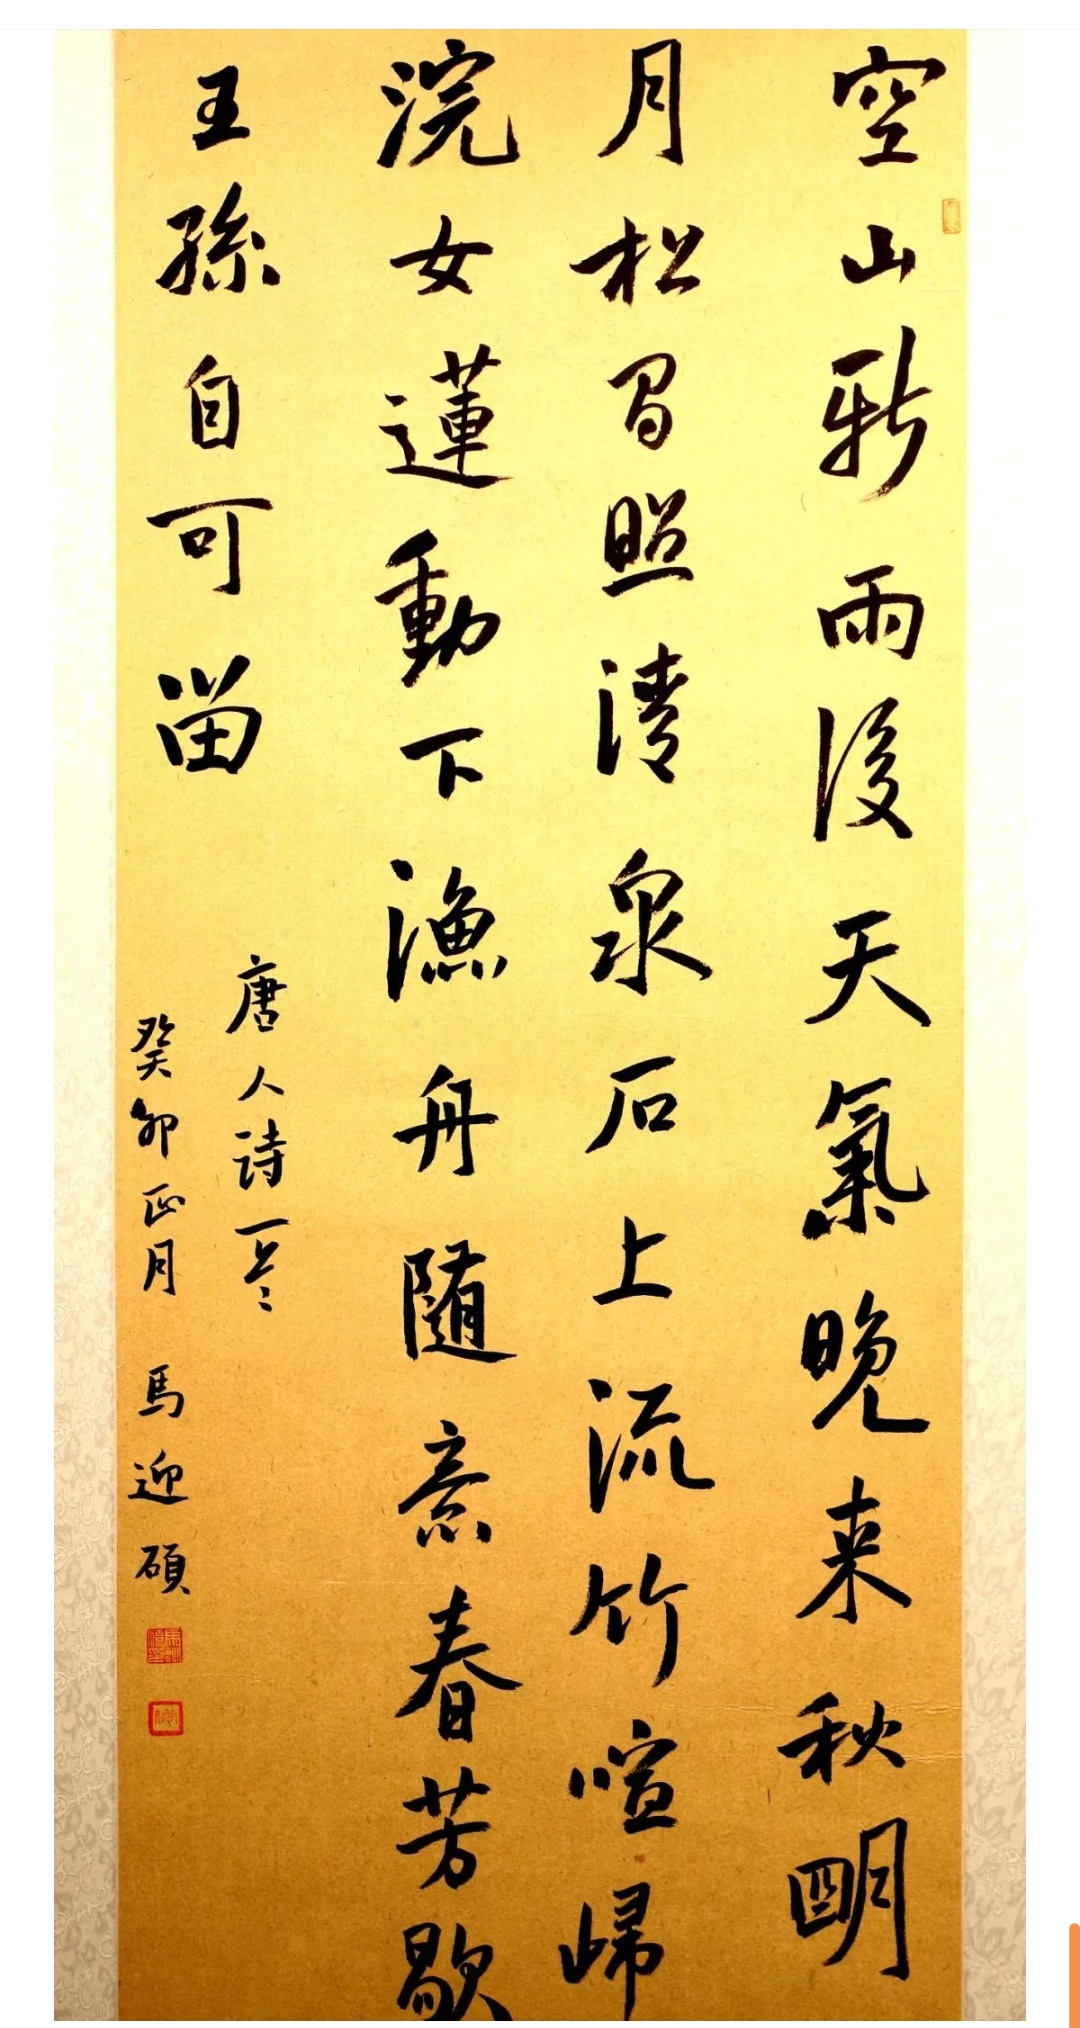 空山新雨後天氣晚来秋明
月松間照清泉石上流竹喧歸
浣女蓮動下漁舟随意春芳歇
王孫自可留
唐人詩一首
癸卯正月 馬迎碩